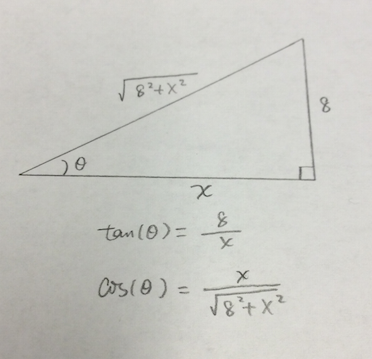 √(8²+x²)
8
θ
x
tan(θ) = 8/x
cos(θ) = x/√(8²+x²)